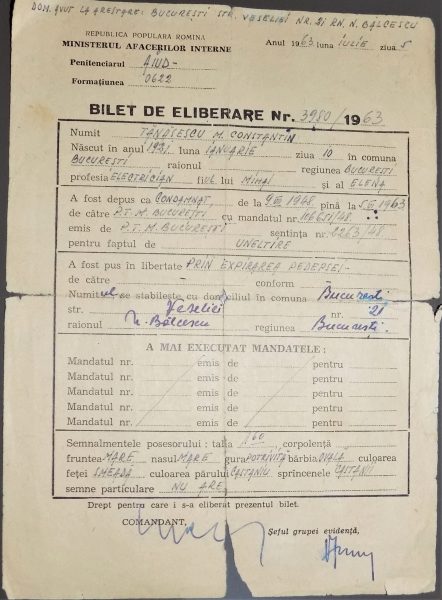 DOM. AVUT LA ARESTARE: BUCUREȘTI STR. VESELIEI NR. 21 RN. N. BĂLCESCU
REPUBLICA POPULARA ROMINA
MINISTERUL AFACERILOR INTERNE
Anul 1963 luna IULIE ziua 5
Penitenciarul AIUD-
Formațiunea 0622
BILET DE ELIBERARE Nr. 3980/1963
Numit TĂNĂSESCU M. CONSTANTIN
Născut în anul 1921 luna IANUARIE ziua 10 în comuna
BUCUREȘTI raionul regiunea BUCUREȘTI
profesia ELECTRICIAN fiul lui MIHAI și al ELENA
A fost depus ca CONDAMNAT, de la 9 VII 1948 pînă la 5 VII 1963
de către P.T. M. BUCUREȘTI cu mandatul nr.
emis de P.T. M. BUCUREȘTI sentința nr. /48
pentru faptul de UNELTIRE
A fost pus în libertate PRIN EXPIRAREA PEDEPSEI-
de către - conform -
Numitul se stabilește cu domiciliul în comuna București
str. Veseliei nr. 21
raionul N. Bălcescu regiunea București.
A MAI EXECUTAT MANDATELE:
Mandatul nr. emis de pentru
Mandatul nr. emis de pentru
Mandatul nr. emis de pentru
Mandatul nr. emis de pentru
Mandatul nr. emis de pentru
Semnalmentele posesorului: talia 1,60 corpolență
fruntea MARE nasul MARE gura POTRIVITĂ bărbia OVALĂ culoarea
feței SMEADĂ culoarea părului CASTANIU sprincenele CASTANII
semne particulare NU ARE
Drept pentru care i s-a eliberat prezentul bilet.
COMANDANT,
Șeful grupei evidență,